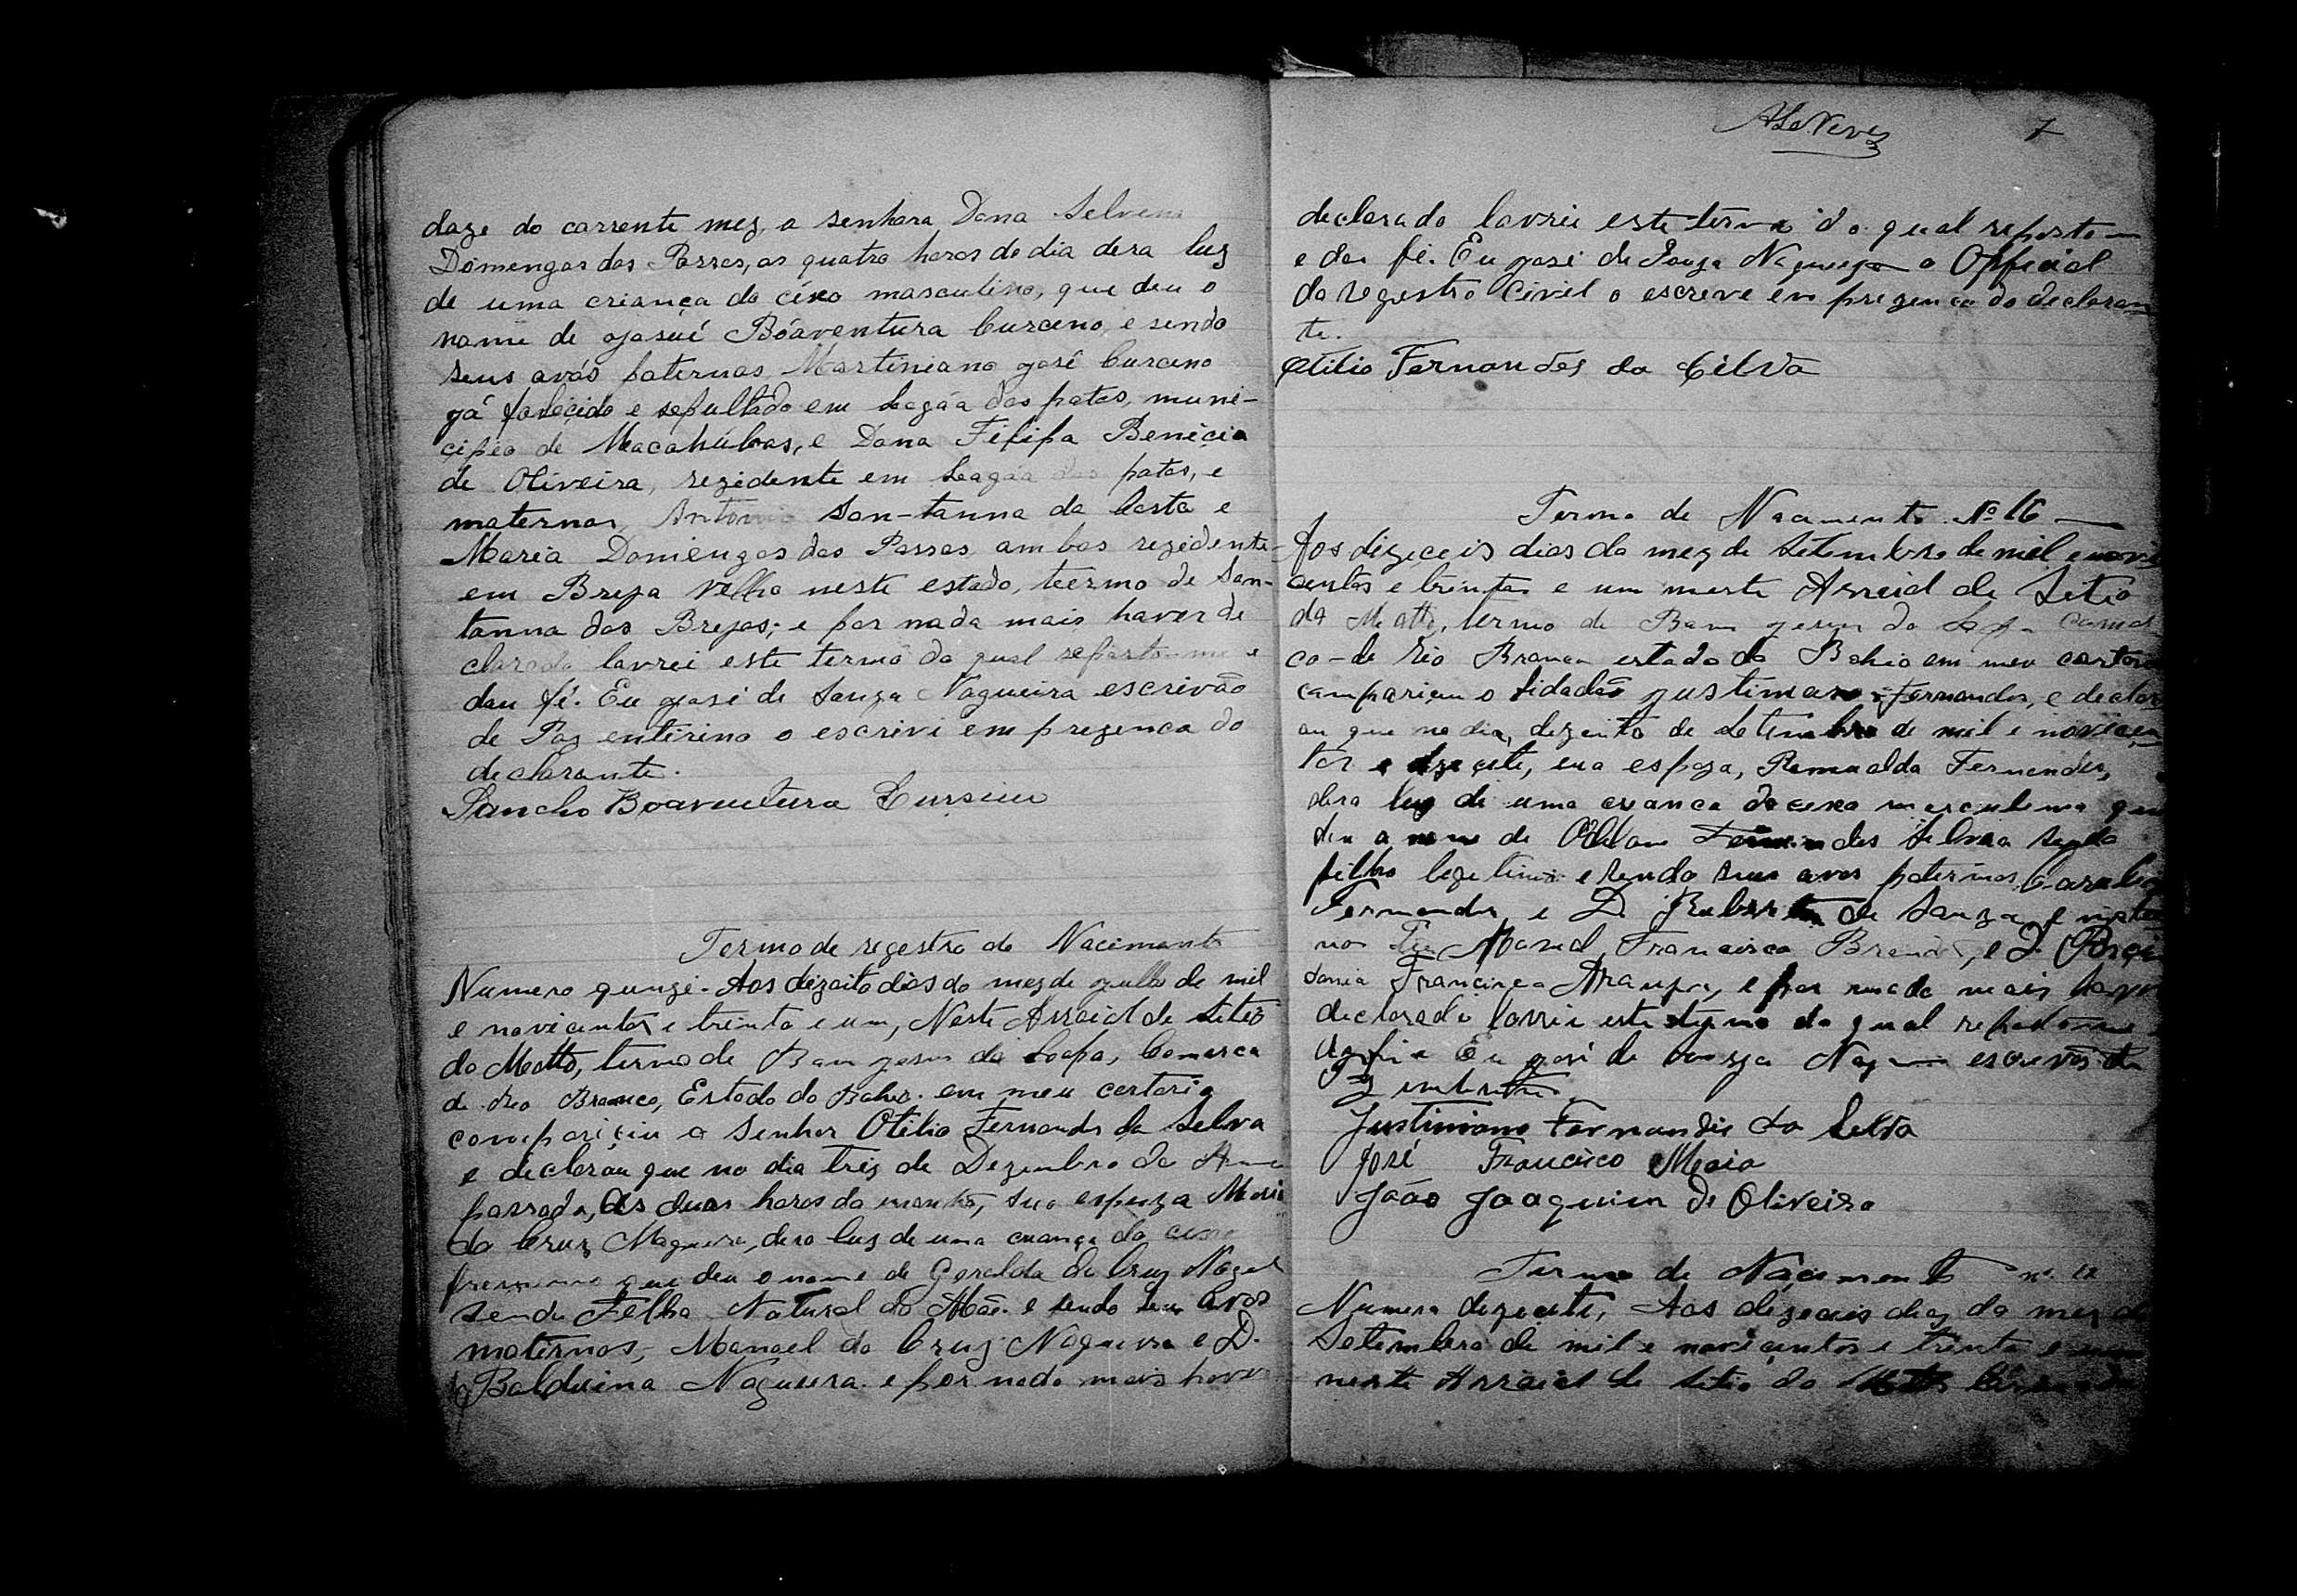 doze do corrente mez, a senhora Dona Selvina
Domengas dos Passos, as quatro horas do dia dera luz
de uma criança do cexo masculino, que deu o
nome de Josué Bôaventura Curcino, e sendo
seus avós paternos Martiniano José Curcino
já falecido e sepultado em Lagôa das patas, muni-
cipio de Macahúbas, e Dona Filipa Benicia
de Oliveira, rezidente em Lagôa das patas, e
maternos, Antonio San-tanna da Costa e
Maria Domengas dos Passos ambos rezidente-
em Brejo Velho neste estado, teermo de San-
tanna dos Brejos; e por nada mais haver de
clarado lavrei este termo do qual reporto-me e
dou fé. Eu José de Souza Nogueira escrivão
de Paz enterino o escrivi em prezenca do
declarante.
Sancho Boaventura Cursino
Termo de registro de Nacimento
Numero quinze. Aos dezoito dias do mez de Julho de mil
e novicentos e trinta e um, Neste Arraial de Sitio
do Matto, termo de Bom Jesus da Lapa, Comarca
de Rio Branco, Estado da Bahia. em meu cartorio
compariçiu o Senhor Otilio Fernandes da Selva
e declarou que no dia trez de Dezembro do Anno
passado, As duas horas da manhã, sua espoza Maria
da Cruz Nogueira, dera luz de uma criança do cexo
femenino que deu o nome de Geralda da Cruz Noguei
sendo Filha Natural da Mãe. e sendo seus Avos
maternos, Manoel da Cruz Nogueira e D.
Balduina Nogueira. e por nada mais haver
7
declarado lavrei este termo do qual reporto-m
e dou fé. Eu José de Souza Nogueira o Official
do registro Civil o escreve em prezenca do declaran
te.
Otilio Fernandes da Cilva
Termo de Nacimento Nº 16
Aos dizeceis dias do mez de Setembro de mil e novi
centos e trinta e um neste Arraial de Sitio
do Matto, termo de Bom Jesus da Lapa Comar
ca-de Rio Branco estado da Bahia em meu cartorio
compariçeu o Cidadão Justimano Fernandes, e declar
ou que no dia, dezoito de Setembro de mil e novicen
tos e dezecete, sua espoza, Romualda Fernandes,
dera luz de uma crianca do cexo masculino que
deu o nome de Fernandes Selva sendo
filho legetimo e sendo seus avos paternos
Fernandes, e D. de Souza e mater
nos Manoel Francisco e D.
Francisca Araujo, e por nada mais haver
declarado lavrei este termo do qual reporto-me
Eu José de Souza Nogueira escrivão de
Justiniano Fernandes da Selva
José Francisco Maia
João Joaquim de Oliveira
Termo de Naçimento
Numero dezecete, Aos dizeceis dias do mez de
Setembro de mil e noviçentos e trinta e um
neste Arraial de Sitio do Matto